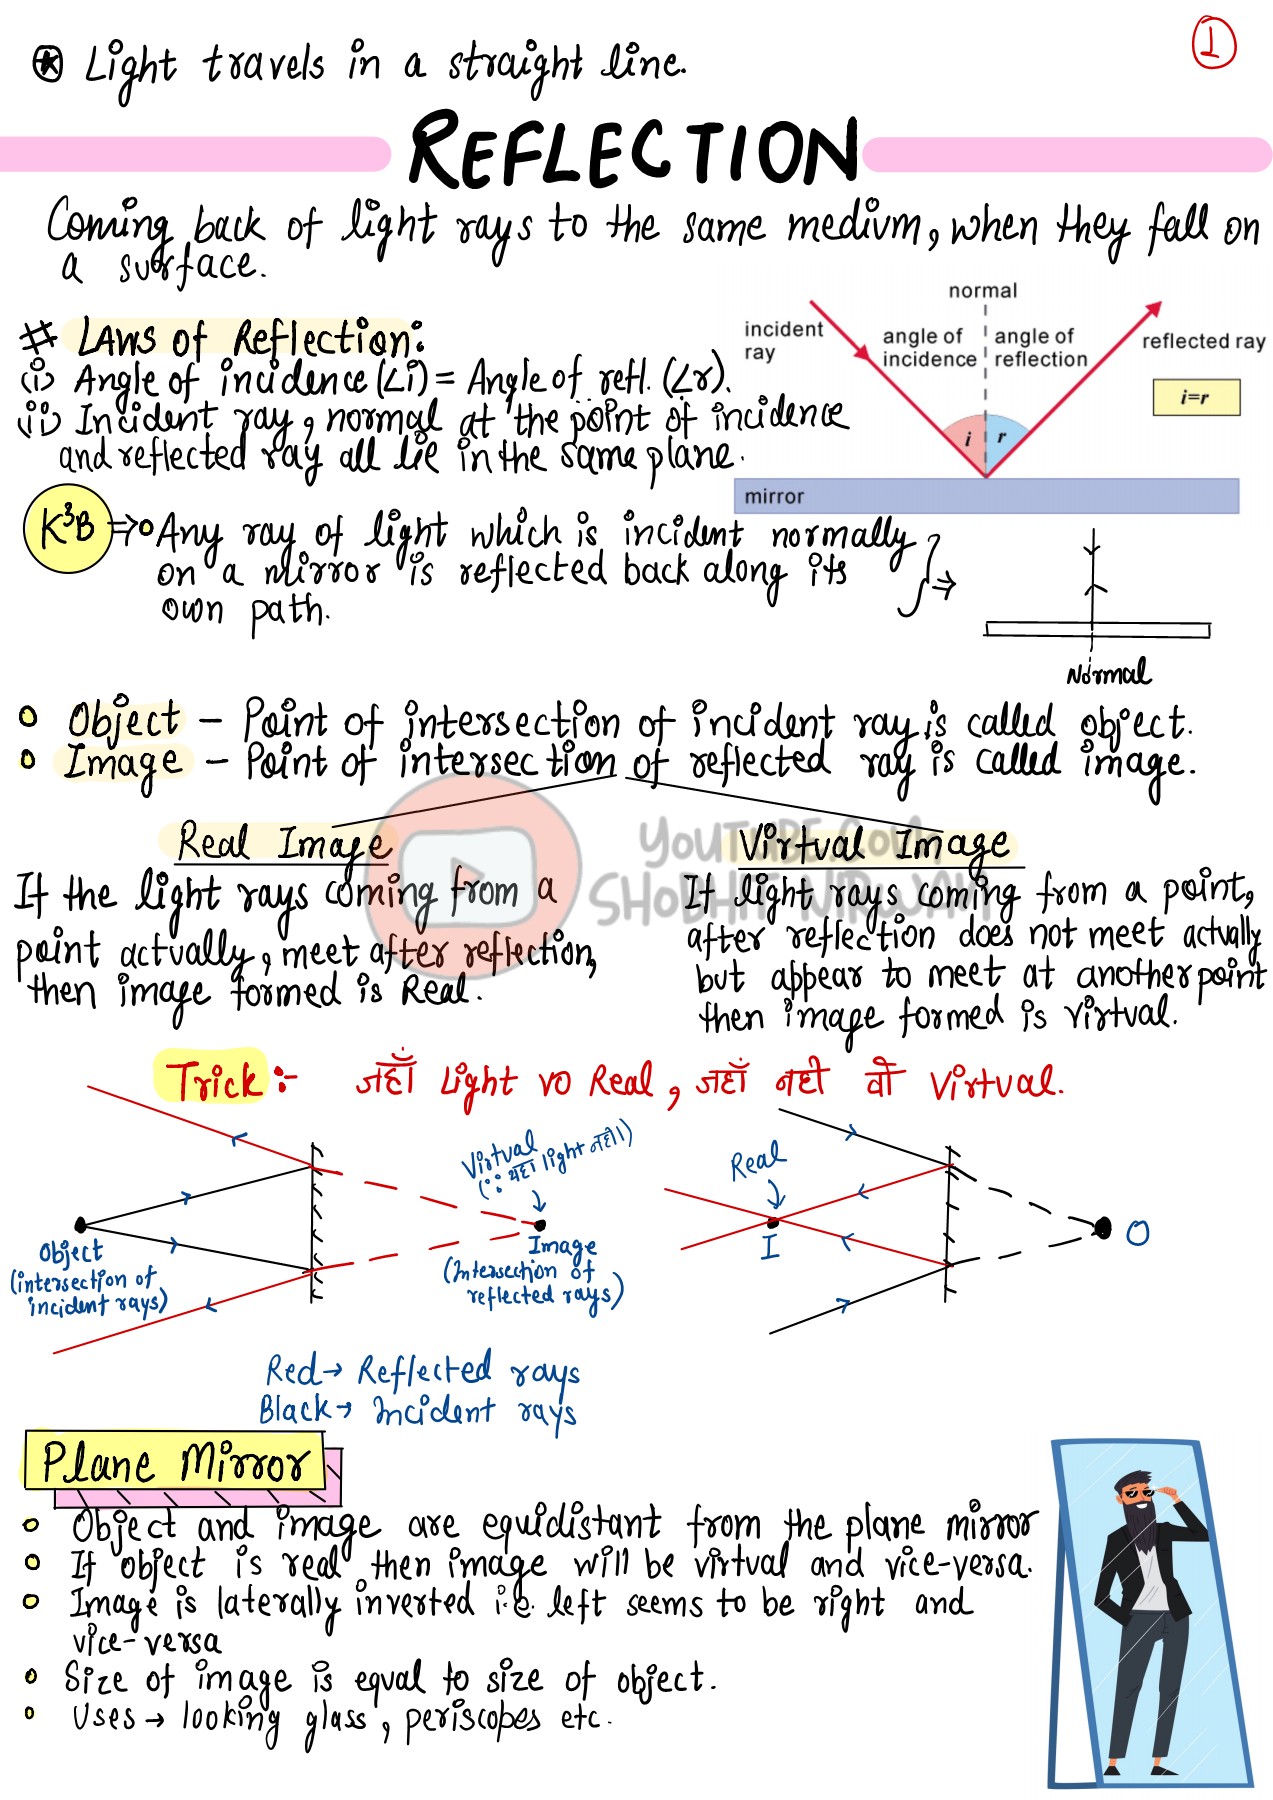 ① 
⊛ Light travels in a straight line.
REFLECTION
Coming back of light rays to the same medium, when they fall on
a surface.
# LAWS of Reflection:
(i) Angle of incidence (∠i) = Angle of refl. (∠r).
(ii) Incident ray, normal at the point of incidence
and reflected ray all lie in the same plane.
normal
incident
ray
angle of
incidence
angle of
reflection
reflected ray
i=r
i
r
mirror
K³B ⇒ • Any ray of light which is incident normally
on a mirror is reflected back along its
own path.
Normal
• Object – Point of intersection of incident ray is called object.
• Image – Point of intersection of reflected ray is called image.
YOUTUBE.COM
SHOBHIT NIRWAN
Real Image
If the light rays coming from a
point actually, meet after reflection,
then image formed is Real.
Virtual Image
If light rays coming from a point,
after reflection does not meet actually
but appear to meet at another point
then image formed is virtual.
Trick :- जहाँ Light वो Real, जहाँ नही वो Virtual.
Virtual
(∵ यहा light नही।)
Object
(intersection of
incident rays)
Image
(Intersection of
reflected rays)
Real
I
O
Red → Reflected rays
Black → Incident rays
Plane Mirror
• Object and image are equidistant from the plane mirror
• If object is real then image will be virtual and vice-versa.
• Image is laterally inverted i.e. left seems to be right and
vice-versa
• Size of image is equal to size of object.
• Uses → looking glass, periscopes etc.